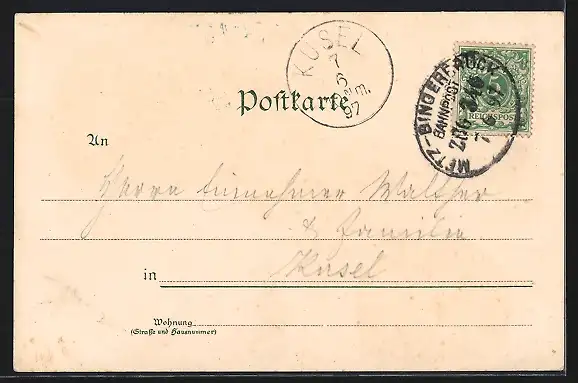 KUSEL
7
6
Nm.
97
METZ-BINGERBRÜCK
BAHNPOST
ZUG
7
5
REICHSPOST
Postkarte
An
Herrn Einnehmer Walther
& Familie
in Kusel
Wohnung
(Straße und Hausnummer)